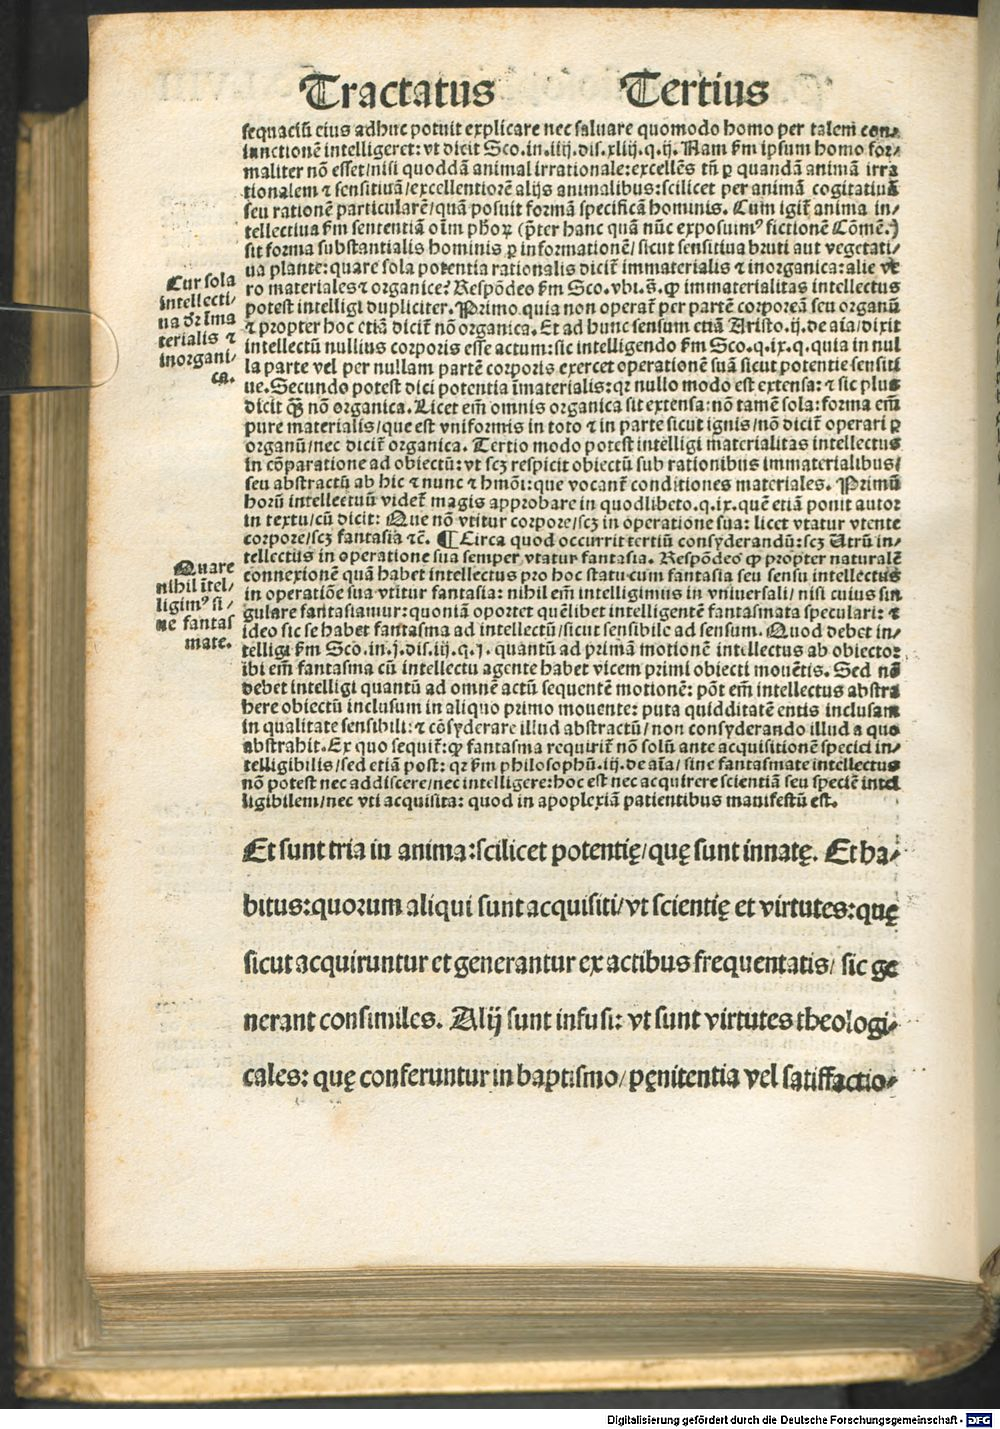 Tractatus Tertius
sequaciū eius adhuc potuit explicare nec saluare quomodo homo per talem con/
iunctionē intelligeret: vt dicit Sco.in.iiij.dis.xliij.q.ij. Nam ẜm ipsum homo for/
maliter nō esset/nisi quoddā animal irrationale: excellēs tñ ꝑ quandā animā irra
tionalem ⁊ sensitiuā/excellentiorē alijs animalibus: scilicet per animā cogitatiuā
seu rationē particularē/quā posuit formā specificā hominis. Cum igit̄ anima in/
tellectiua ẜm sententiā oīm phōꝝ (p̄ter hanc quā nūc exposuimꝰ fictionē Cōmē.)
sit forma substantialis hominis ꝑ informationē/sicut sensitiua bruti aut vegetati/
ua plante: quare sola potentia rationalis dicit̄ immaterialis ⁊ inorganica: alie ve
ro materiales ⁊ organice? Respōdeo ẜm Sco.vbi.s̄. ꝙ immaterialitas intellectus
potest intelligi dupliciter. Primo quia non operat̄ per partē corporeā seu organū
⁊ propter hoc etiā dicit̄ nō organica. Et ad hunc sensum etiā Aristo.ij.de aīa/dixit
intellectū nullius corporis esse actum: sic intelligendo ẜm Sco.q.ix.q. quia in nul
la parte vel per nullam partē corporis exercet operationē suā sicut potentie sensiti
ue. Secundo potest dici potentia īmaterialis: qꝛ nullo modo est extensa: ⁊ sic plus
dicit ꝙ̄ nō organica. Licet em̄ omnis organica sit extensa: nō tamē sola: forma em̄
pure materialis/que est vniformis in toto ⁊ in parte sicut ignis/nō dicit̄ operari ꝑ
organū/nec dicit̄ organica. Tertio modo potest intelligi materialitas intellectus
in cōparatione ad obiectū: vt scꝫ respicit obiectū sub rationibus immaterialibus/
seu abstractū ab hic ⁊ nunc ⁊ hmōi: que vocant̄ conditiones materiales. Primū
horū intellectuū videt̄ magis approbare in quodlibeto.q.ix.quē etiā ponit autor
in textu/cū dicit: Que nō vtitur corpore/scꝫ in operatione sua: licet vtatur vtente
corpore/scꝫ fantasia ⁊c̄. ¶ Circa quod occurrit tertiū consyderandū: scꝫ Utrū in/
tellectus in operatione sua semper vtatur fantasia. Respōdeo ꝙ propter naturalē
connexionē quā habet intellectus pro hoc statu cum fantasia seu sensu intellectus
in operatiōe sua vtitur fantasia: nihil em̄ intelligimus in vniuersali/nisi cuius sin
gulare fantasiamur: quoniā oportet quēlibet intelligentē fantasmata speculari: ⁊
ideo sic se habet fantasma ad intellectū/sicut sensibile ad sensum. Quod debet in/
telligi ẜm Sco.in.j.dis.iij.q.j. quantū ad primā motionē intellectus ab obiecto:
ibi em̄ fantasma cū intellectu agente habet vicem primi obiecti mouētis. Sed nō
debet intelligi quantū ad omnē actū sequentē motionē: pōt em̄ intellectus abstra
here obiectū inclusum in aliquo primo mouente: puta quidditatē entis inclusam
in qualitate sensibili: ⁊ cōsyderare illud abstractū/non consyderando illud a quo
abstrahit. Ex quo sequit̄: ꝙ fantasma requirit̄ nō solū ante acquisitionē speciei in/
telligibilis/sed etiā post: qꝛ ẜm philosophū.iij.de aīa/sine fantasmate intellectus
nō potest nec addiscere/nec intelligere: hoc est nec acquirere scientiā seu speciē intel
ligibilem/nec vti acquisita: quod in apoplexiā patientibus manifestū est.
Cur sola
intellecti/
ua dr̄ īma
terialis ⁊
inorgani/
ca.
Quare
nihil ītel/
ligimꝰ si/
ne fantas
mate.
Et sunt tria in anima: scilicet potentię/quę sunt innatę. Et ha/
bitus: quorum aliqui sunt acquisiti/vt scientię et virtutes: quę
sicut acquiruntur et generantur ex actibus frequentatis/ sic ge
nerant consimiles. Alij sunt infusi: vt sunt virtutes theologi/
cales: quę conferuntur in baptismo/pęnitentia vel satiffactio/
Digitalisierung gefördert durch die Deutsche Forschungsgemeinschaft - DFG